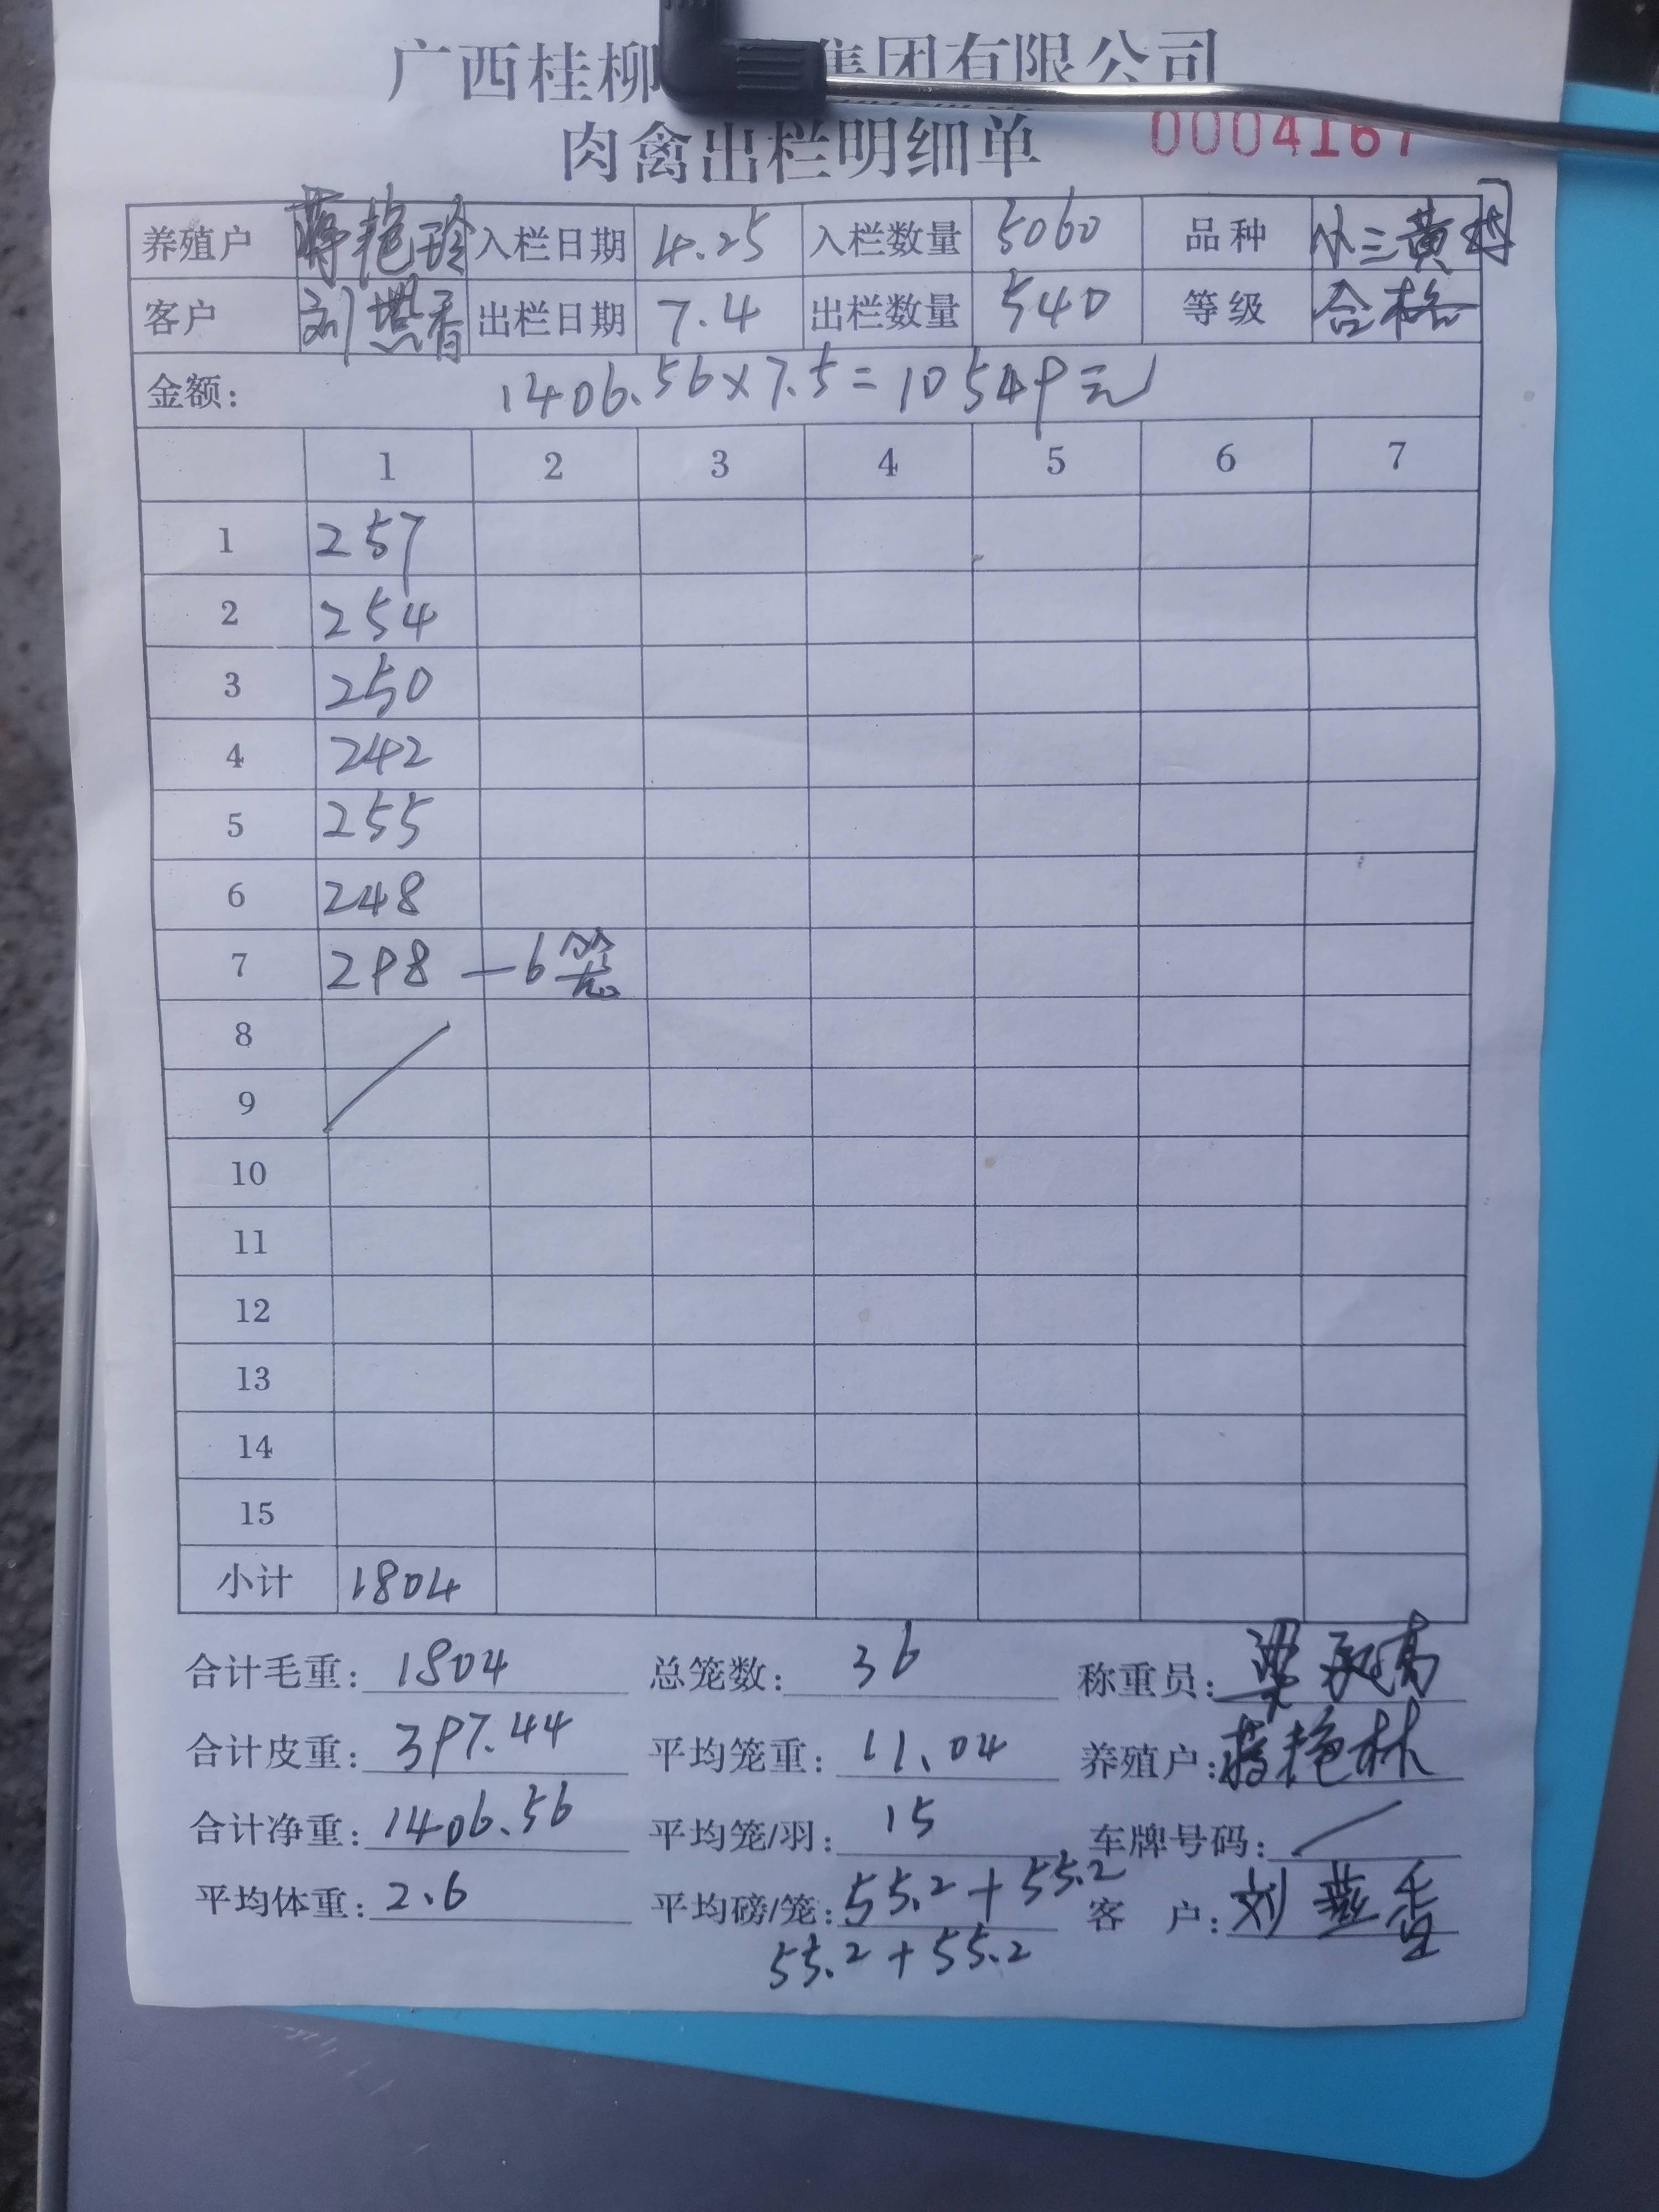 广西桂柳 集团有限公司
肉禽出栏明细单 0004167
养殖户 蒋艳玲 入栏日期 4.25 入栏数量 5060 品种 小三黄
客户 刘燕香 出栏日期 7.4 出栏数量 540 等级 合格
金额: 1406.56×7.5=10549元
1 2 3 4 5 6 7
1 257
2 254
3 250
4 242
5 255
6 248
7 298 —6笼
8
9
10
11
12
13
14
15
小计 1804
合计毛重: 1804 总笼数: 36 称重员: 梁
合计皮重: 397.44 平均笼重: 11.04 养殖户: 蒋艳林
合计净重: 1406.56 平均笼/羽: 15 车牌号码: /
平均体重: 2.6 平均磅/笼: 55.2+55.2 客 户: 刘燕香
55.2+55.2